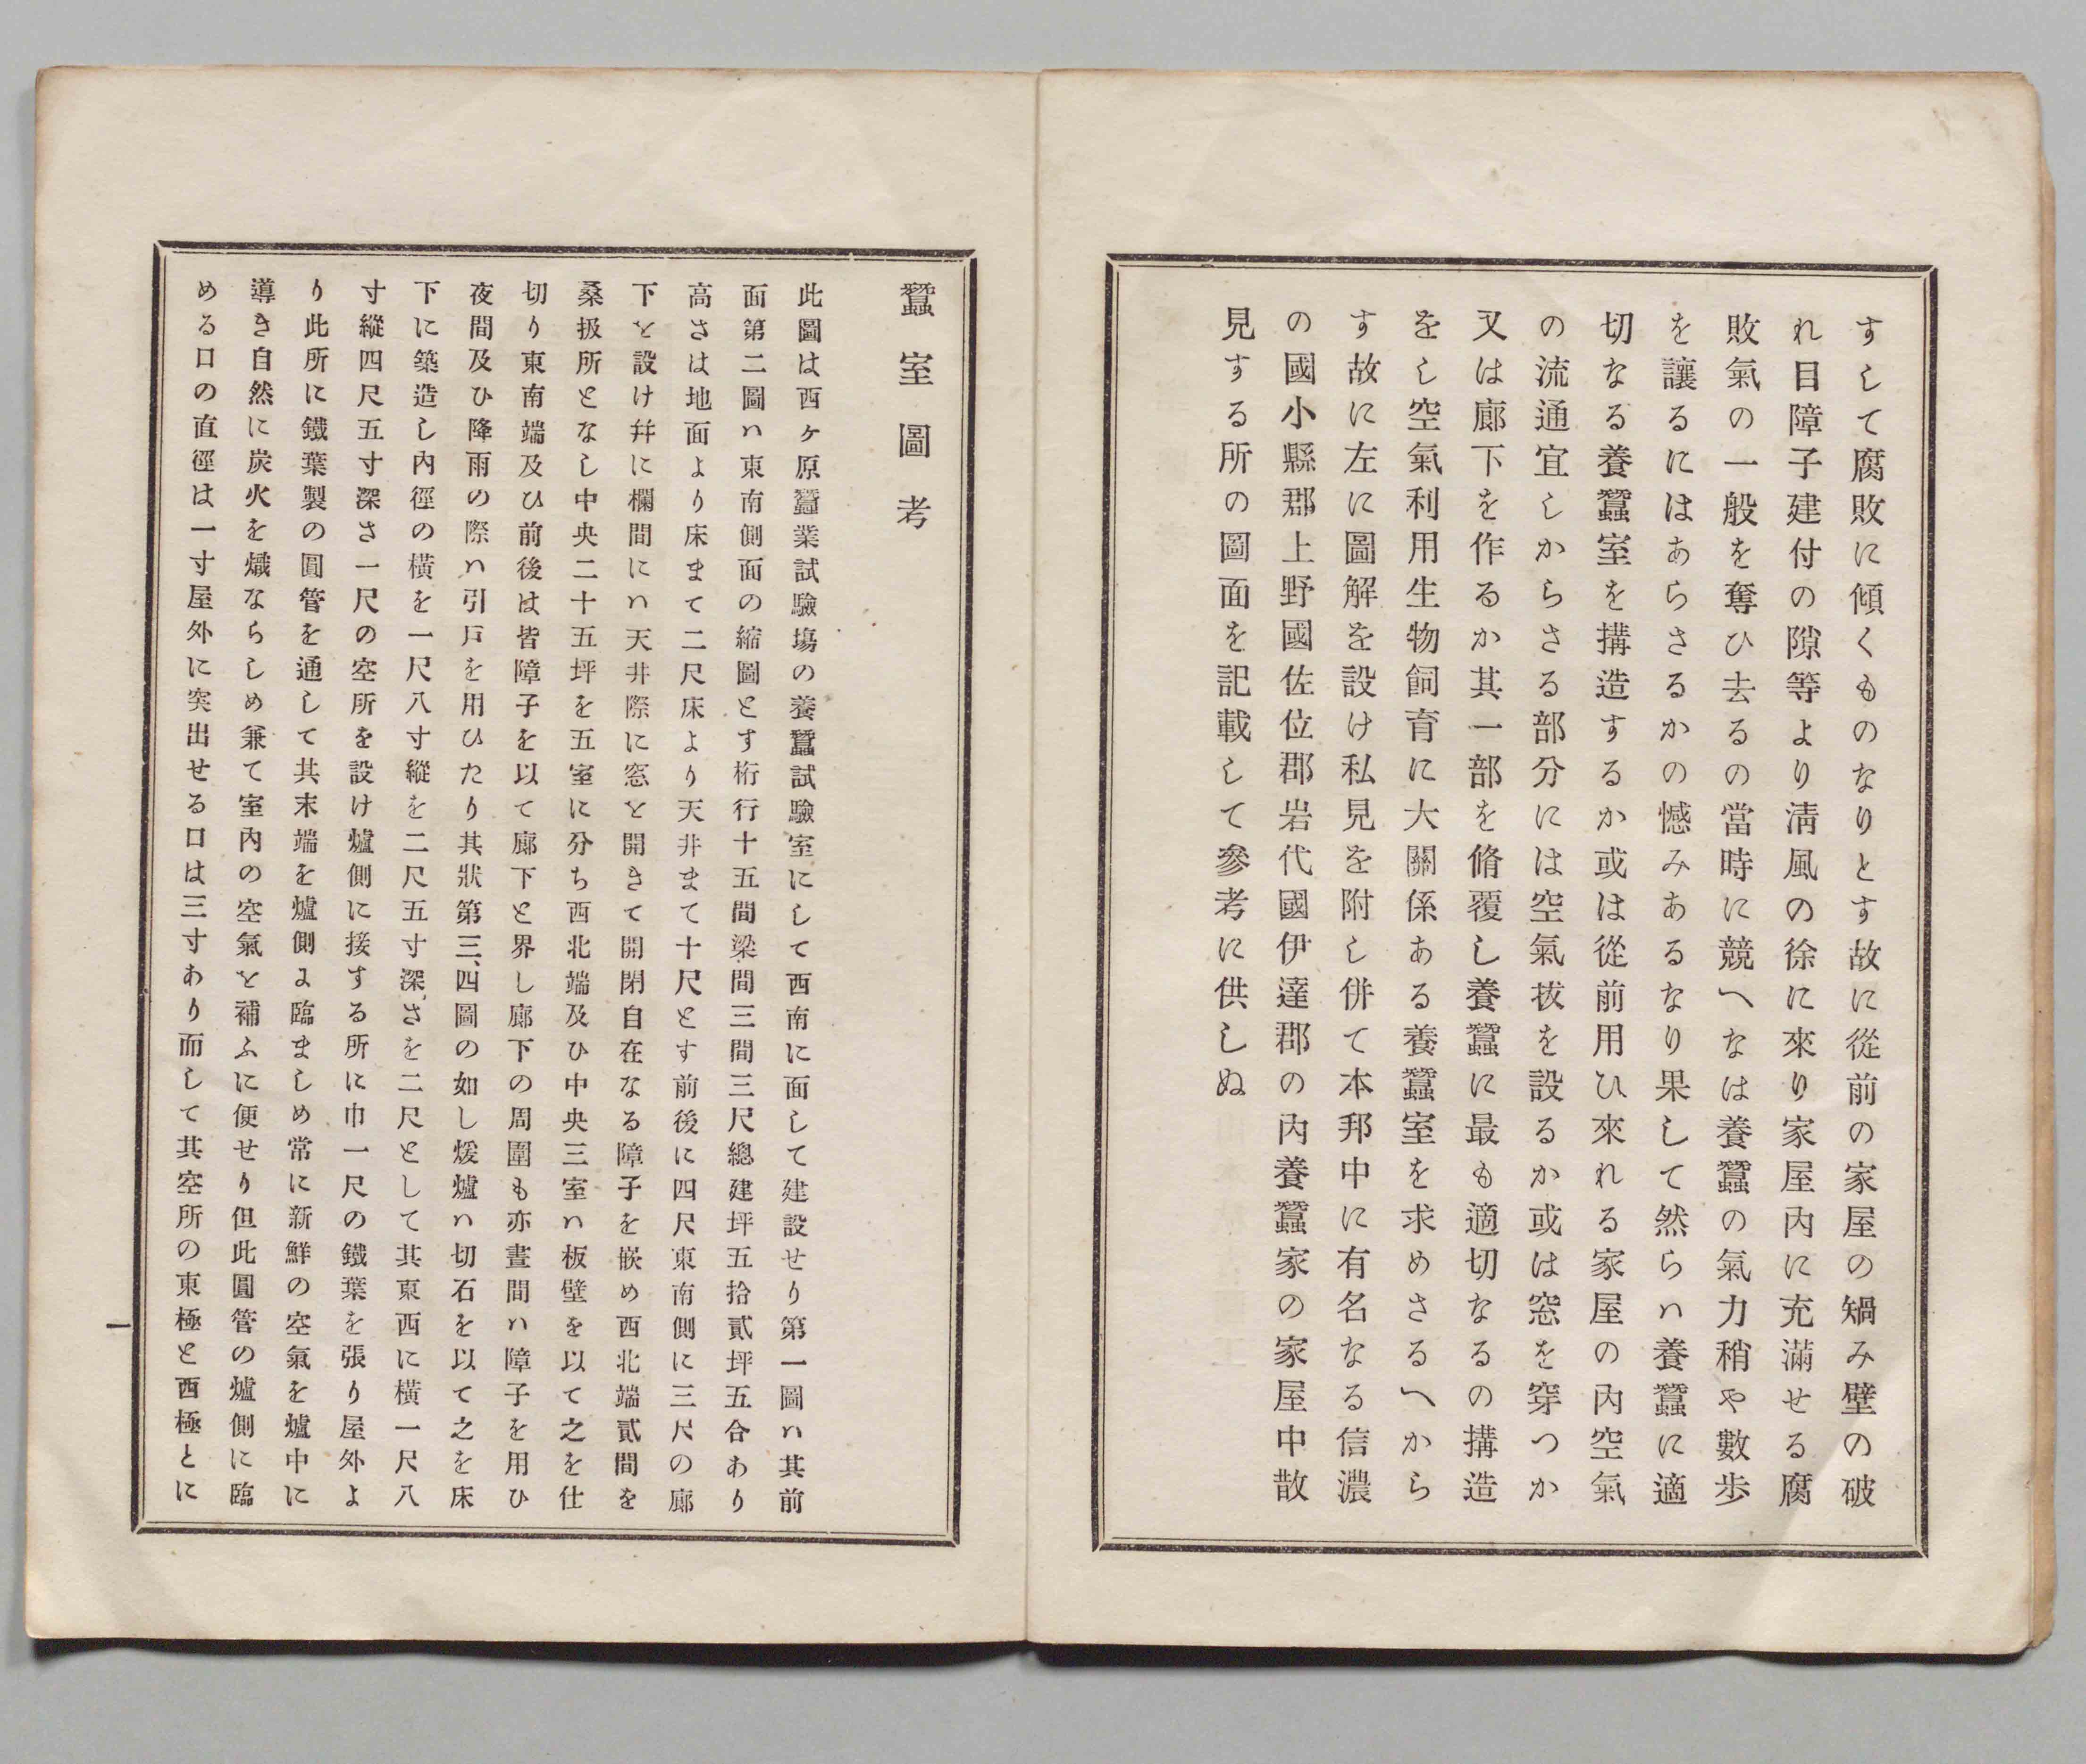 すして腐敗に傾くものなりとす故に從前の家屋の矮み壁の破
れ目障子建付の隙等より淸風の徐に來り家屋内に充滿せる腐
敗氣の一般を奪ひ去るの當時に競へなは養蠶の氣力稍や數歩
を讓るにはあらさるかの憾みあるなり果して然らハ養蠶に適
切なる養蠶室を搆造するか或は從前用ひ來れる家屋の内空氣
の流通宜しからさる部分には空氣拔を設るか或は窓を穿つか
又は廊下を作るか其一部を脩覆し養蠶に最も適切なるの搆造
をし空氣利用生物飼育に大關係ある養蠶室を求めさるへから
す故に左に圖解を設け私見を附し併て本邦中に有名なる信濃
の國小縣郡上野國佐位郡岩代國伊達郡の内養蠶家の家屋中散
見する所の圖面を記載して參考に供しぬ
蠶室圖考
此圖は西ヶ原蠶業試驗塲の養蠶試驗室にして西南に面して建設せり第一圖ハ其前
面第二圖ハ東南側面の縮圖とす桁行十五間梁間三間三尺總建坪五拾貳坪五合あり
高さは地面より床まて二尺床より天井まて十尺とす前後に四尺東南側に三尺の廊
下を設け幷に欄間にハ天井際に窓を開きて開閉自在なる障子を嵌め西北端貳間を
桑扱所となし中央二十五坪を五室に分ち西北端及ひ中央三室ハ板壁を以て之を仕
切り東南端及ひ前後は皆障子を以て廊下と界し廊下の周圍も亦晝間ハ障子を用ひ
夜間及ひ降雨の際ハ引戸を用ひたり其狀第三、四圖の如し煖爐ハ切石を以て之を床
下に築造し内徑の橫を一尺八寸縱を二尺五寸深さを二尺として其東西に橫一尺八
寸縱四尺五寸深さ一尺の空所を設け爐側に接する所に巾一尺の鐵葉を張り屋外よ
り此所に鐵葉製の圓管を通して其末端を爐側に臨ましめ常に新鮮の空氣を爐中に
導き自然に炭火を熾ならしめ兼て室内の空氣を補ふに便せり但此圓管の爐側に臨
める口の直徑は一寸屋外に突出せる口は三寸あり而して其空所の東極と西極とに
一